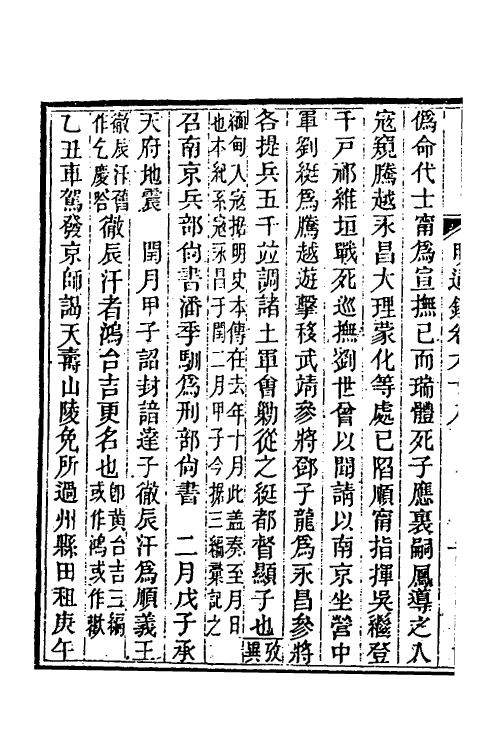 明通鑑卷六十八
僞命代士甯爲宣撫已而瑞體死子應裏嗣鳳導之入
寇窺騰越永昌大理蒙化等處已陷順甯指揮吳繼登
千戸祁維垣戰死巡撫劉世曾以聞請以南京坐營中
軍劉綎爲騰越遊擊移武靖參將鄧子龍爲永昌參將
各提兵五千並調諸土軍會勦從之綎都督顯子也攷異
緬甸人寇據明史本傳在去年十月此蓋奏至月日
也本紀系寇永昌于閏二月甲子今據三編彙記之
召南京兵部尙書潘季馴爲刑部尙書　二月戊子承
天府地震　閏月甲子詔封諳達子徹辰汗爲順義王
徹辰汗舊
作乞慶哈
徹辰汗者鴻台吉更名也
卽黄台吉三編
或作鴻或作歡
乙丑車駕發京師謁天壽山陵免所過州縣田租庚午